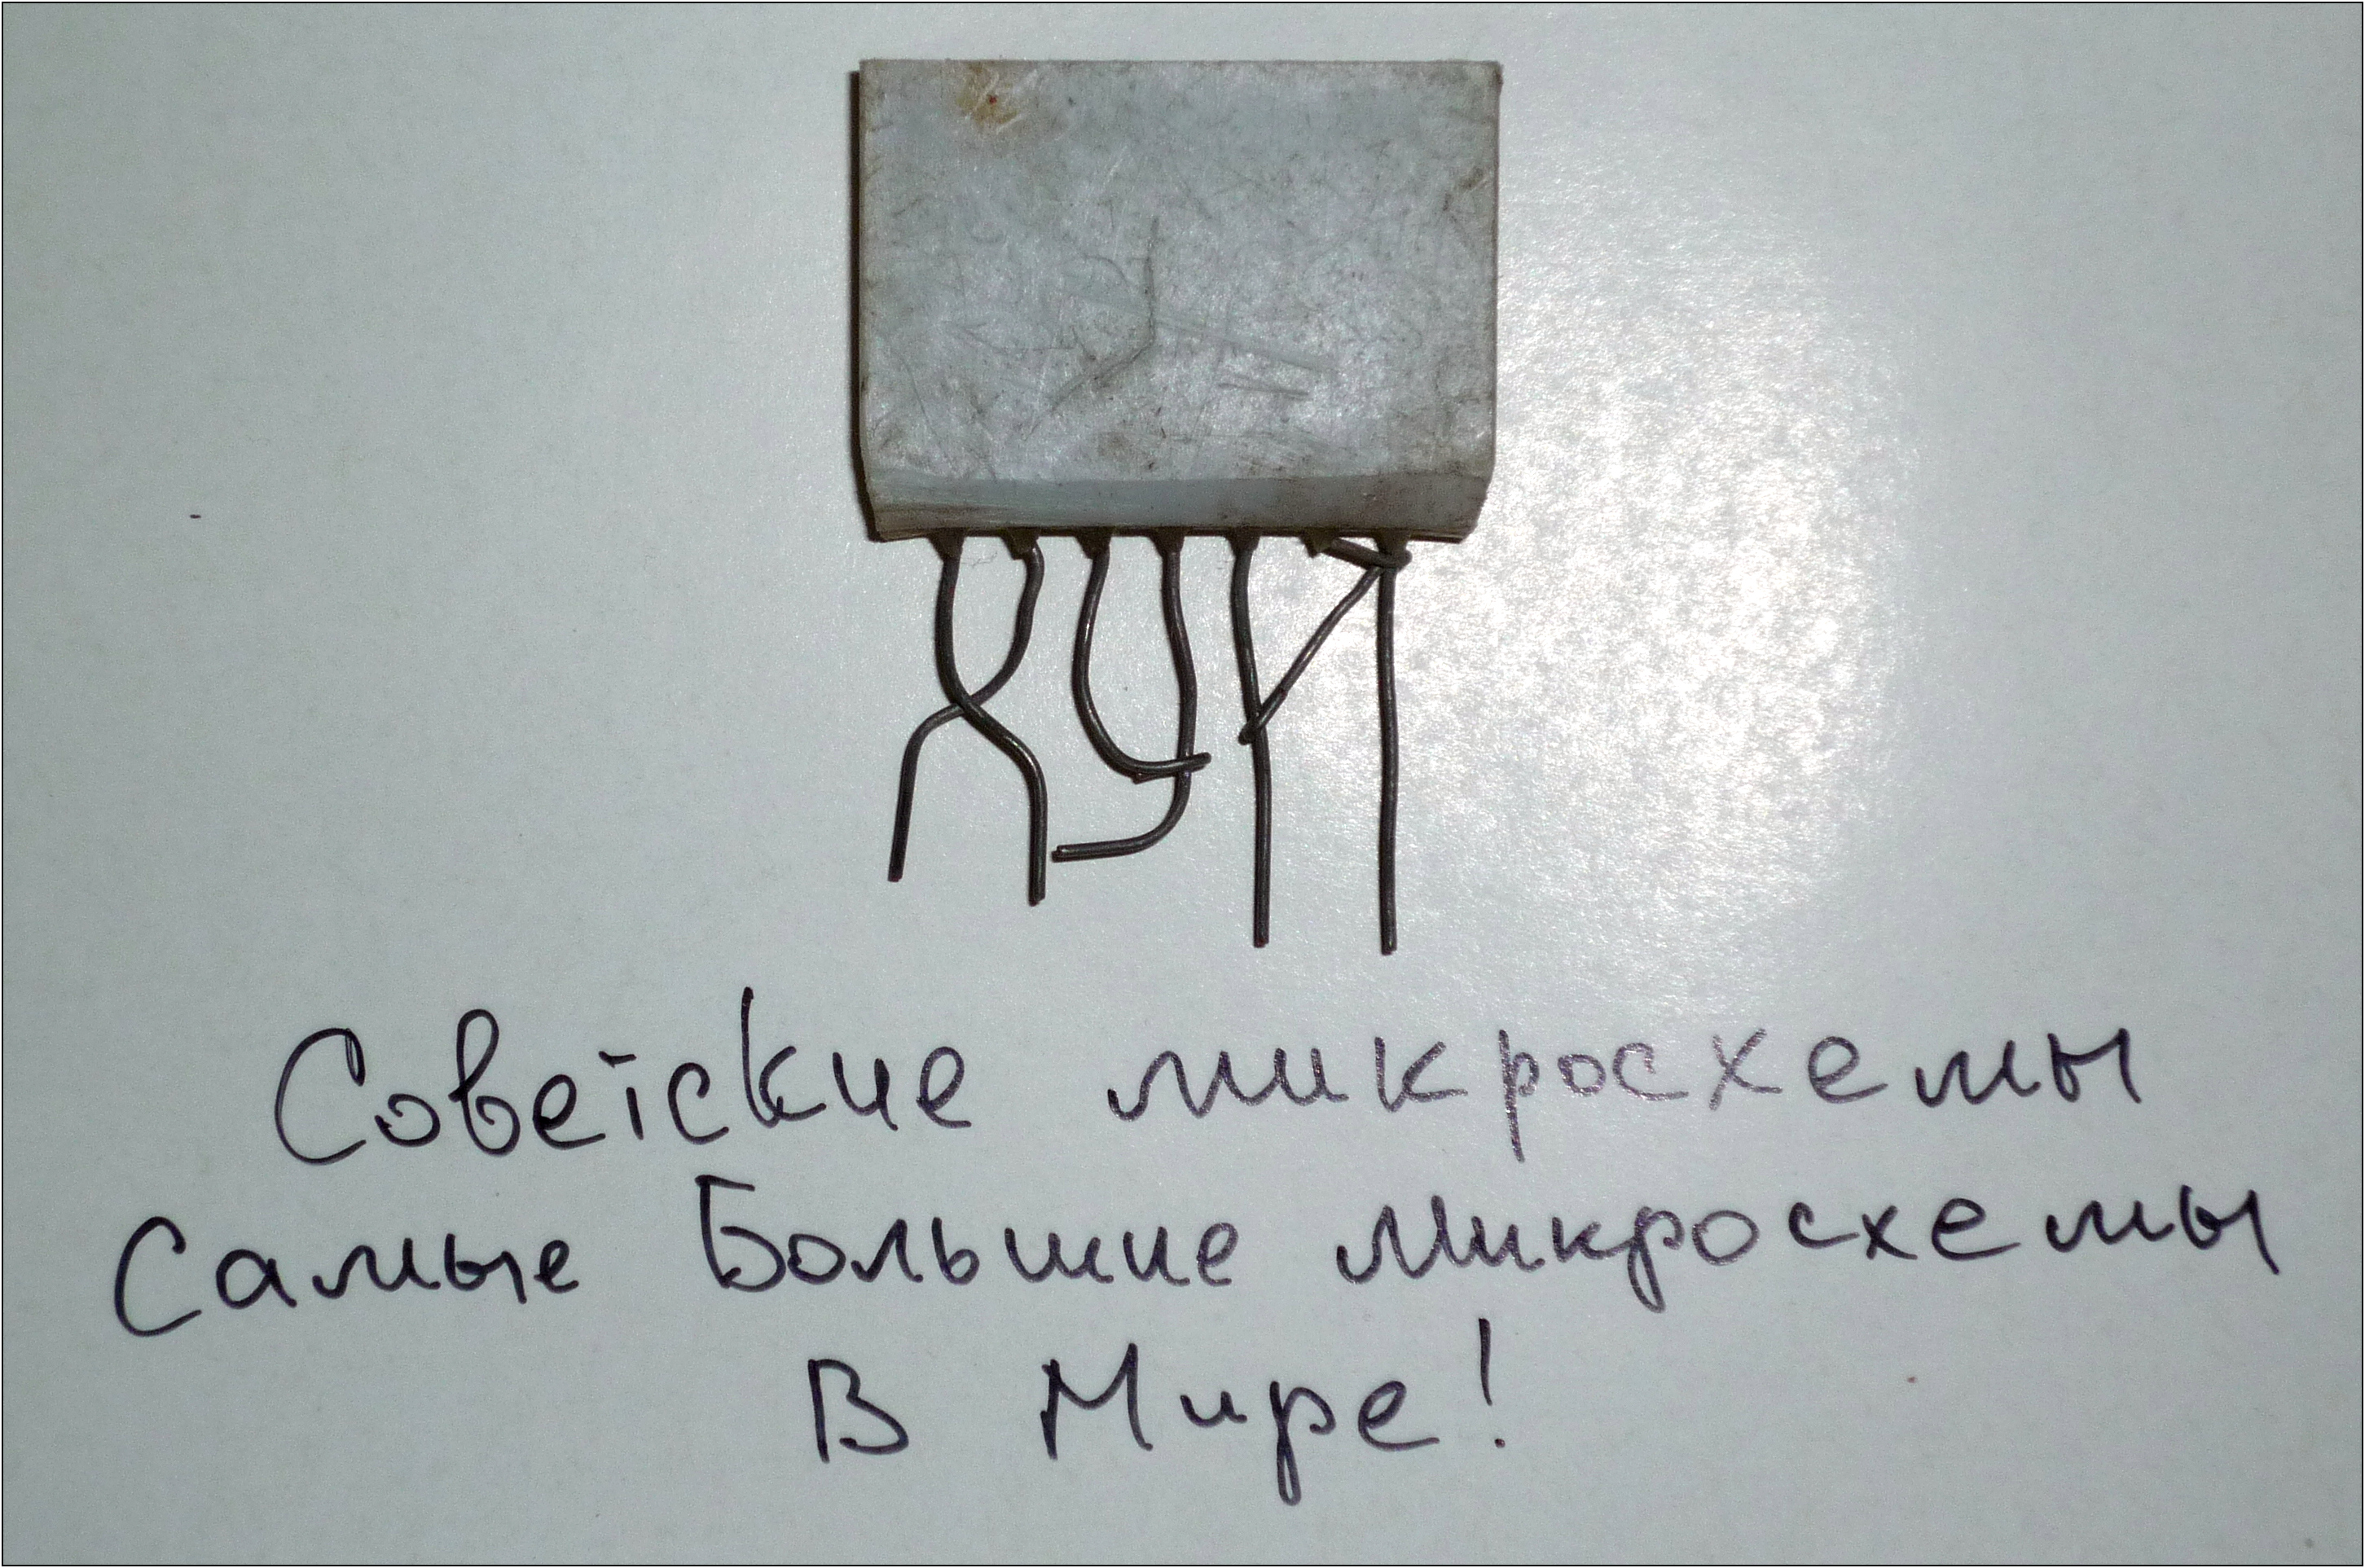 ХУЙ
Советские микросхемы
Самые Большие Микросхемы
В Мире!